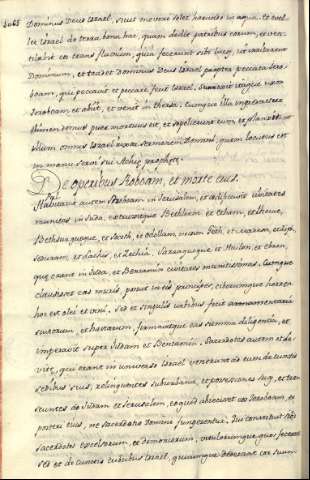 Dominus Deus Israel, sicut moveri solet harundo in aqua, et evel-
let Israel de terra bona hac, quam dedit patribus eorum, et ven-
tilabit eos trans flumen, quia fecerunt sibi lucos, ut irritarent
Dominum, et tradet Dominus Deus Israel propter peccata Jero-
boam, qui peccavit et peccare fecit Israel. Surrexit itaque uxor
Jeroboam et abiit, et venit in Thersa: cumque illa ingrederetur
limen domus puer mortuus est, et sepelierunt eum, et planxit
illum omnis Israel juxta sermonem Domini, quem locutus est
in manu servi sui Achiæ prophetæ.
De operibus Roboam, et morte eius.
Habitavit autem Roboam in Jerusalem, et ædificavit civitates
muratas in Juda, extruxitque Bethleem et Etham, et Thecue,
Bethsur quoque, et Socho, et Odollam, necnon Geth, et Maresa, et Ziph,
Aduram, et Lachis, et Azecha, Saraa quoque et Hailon, et Ebron,
quæ erant in Juda, et Benjamin civitates munitissimas. Cumque
clausisset eas muris, posuit in eis principes, ciborumque horrea
hoc est olei et vini, sed et singulis urbibus fecit armamentaria
scutorum, et hastarum, firmavitque eas summa diligentia, et
imperavit super Judam et Benjamin. Sacerdotes autem et Le-
vitæ, qui erant in universo Israel venerunt ad eum de cunctis
sedibus suis, relinquentes suburbana, et possessiones suas, et trans-
euntes ad Judam, et Jerusalem, eo quod abiecisset eos Jeroboam, et
posteri eius, ne sacerdotio Domini fungerentur, Qui constituit sibi
sacerdotes excelsorum, et dæmoniorum, vitulorumque quos fecerat
sed et de cunctis tribubus Israel, quicumque dederant cor suum